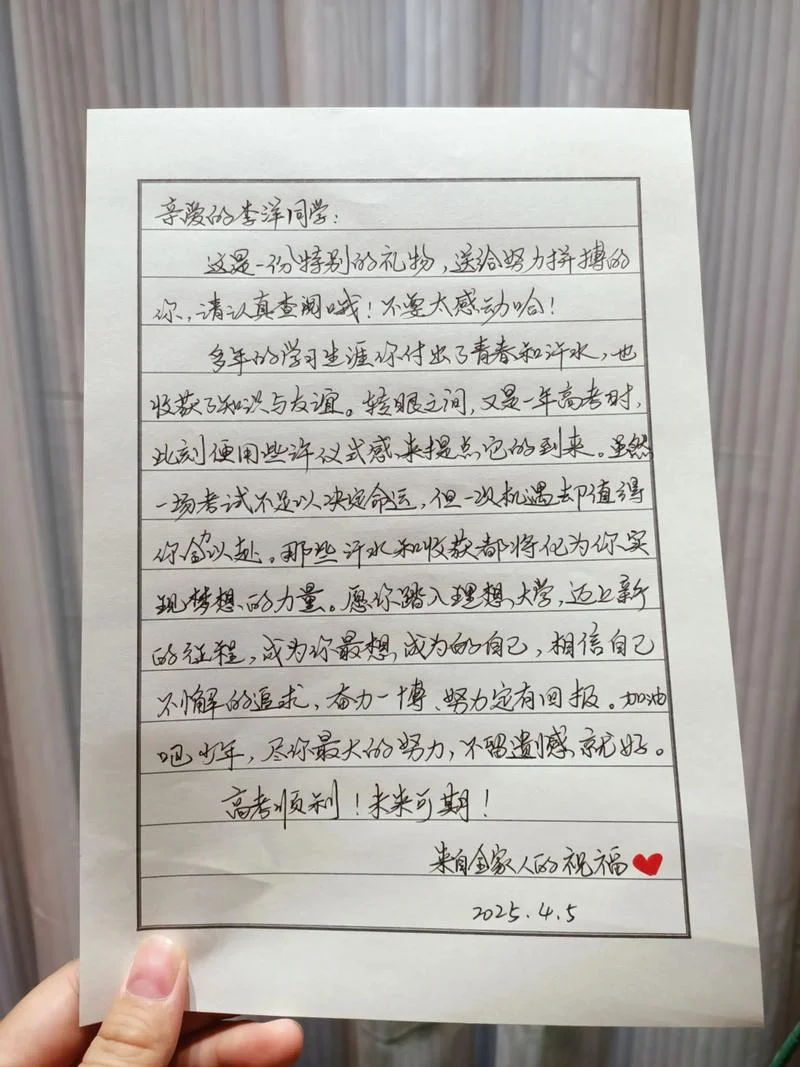 亲爱的李洋同学：
这是一份特别的礼物，送给努力拼搏的
你，请认真查阅哦！不要太感动哈！
多年的学习生涯你付出了青春和汗水，也
收获了知识与友谊。转眼之间，又是一年高考时，
此刻便用些许仪式感来提点它的到来。虽然
一场考试不足以决定命运，但一次机遇却值得
你全力以赴。那些汗水和收获都将化为你实
现梦想的力量。愿你踏入理想大学，迈上新
的征程，成为你最想成为的自己，相信自己
不懈的追求，奋力一博、努力定有回报。加油
吧少年，尽你最大的努力，不留遗憾就好。
高考顺利！未来可期！
来自全家人的祝福
2025.4.5